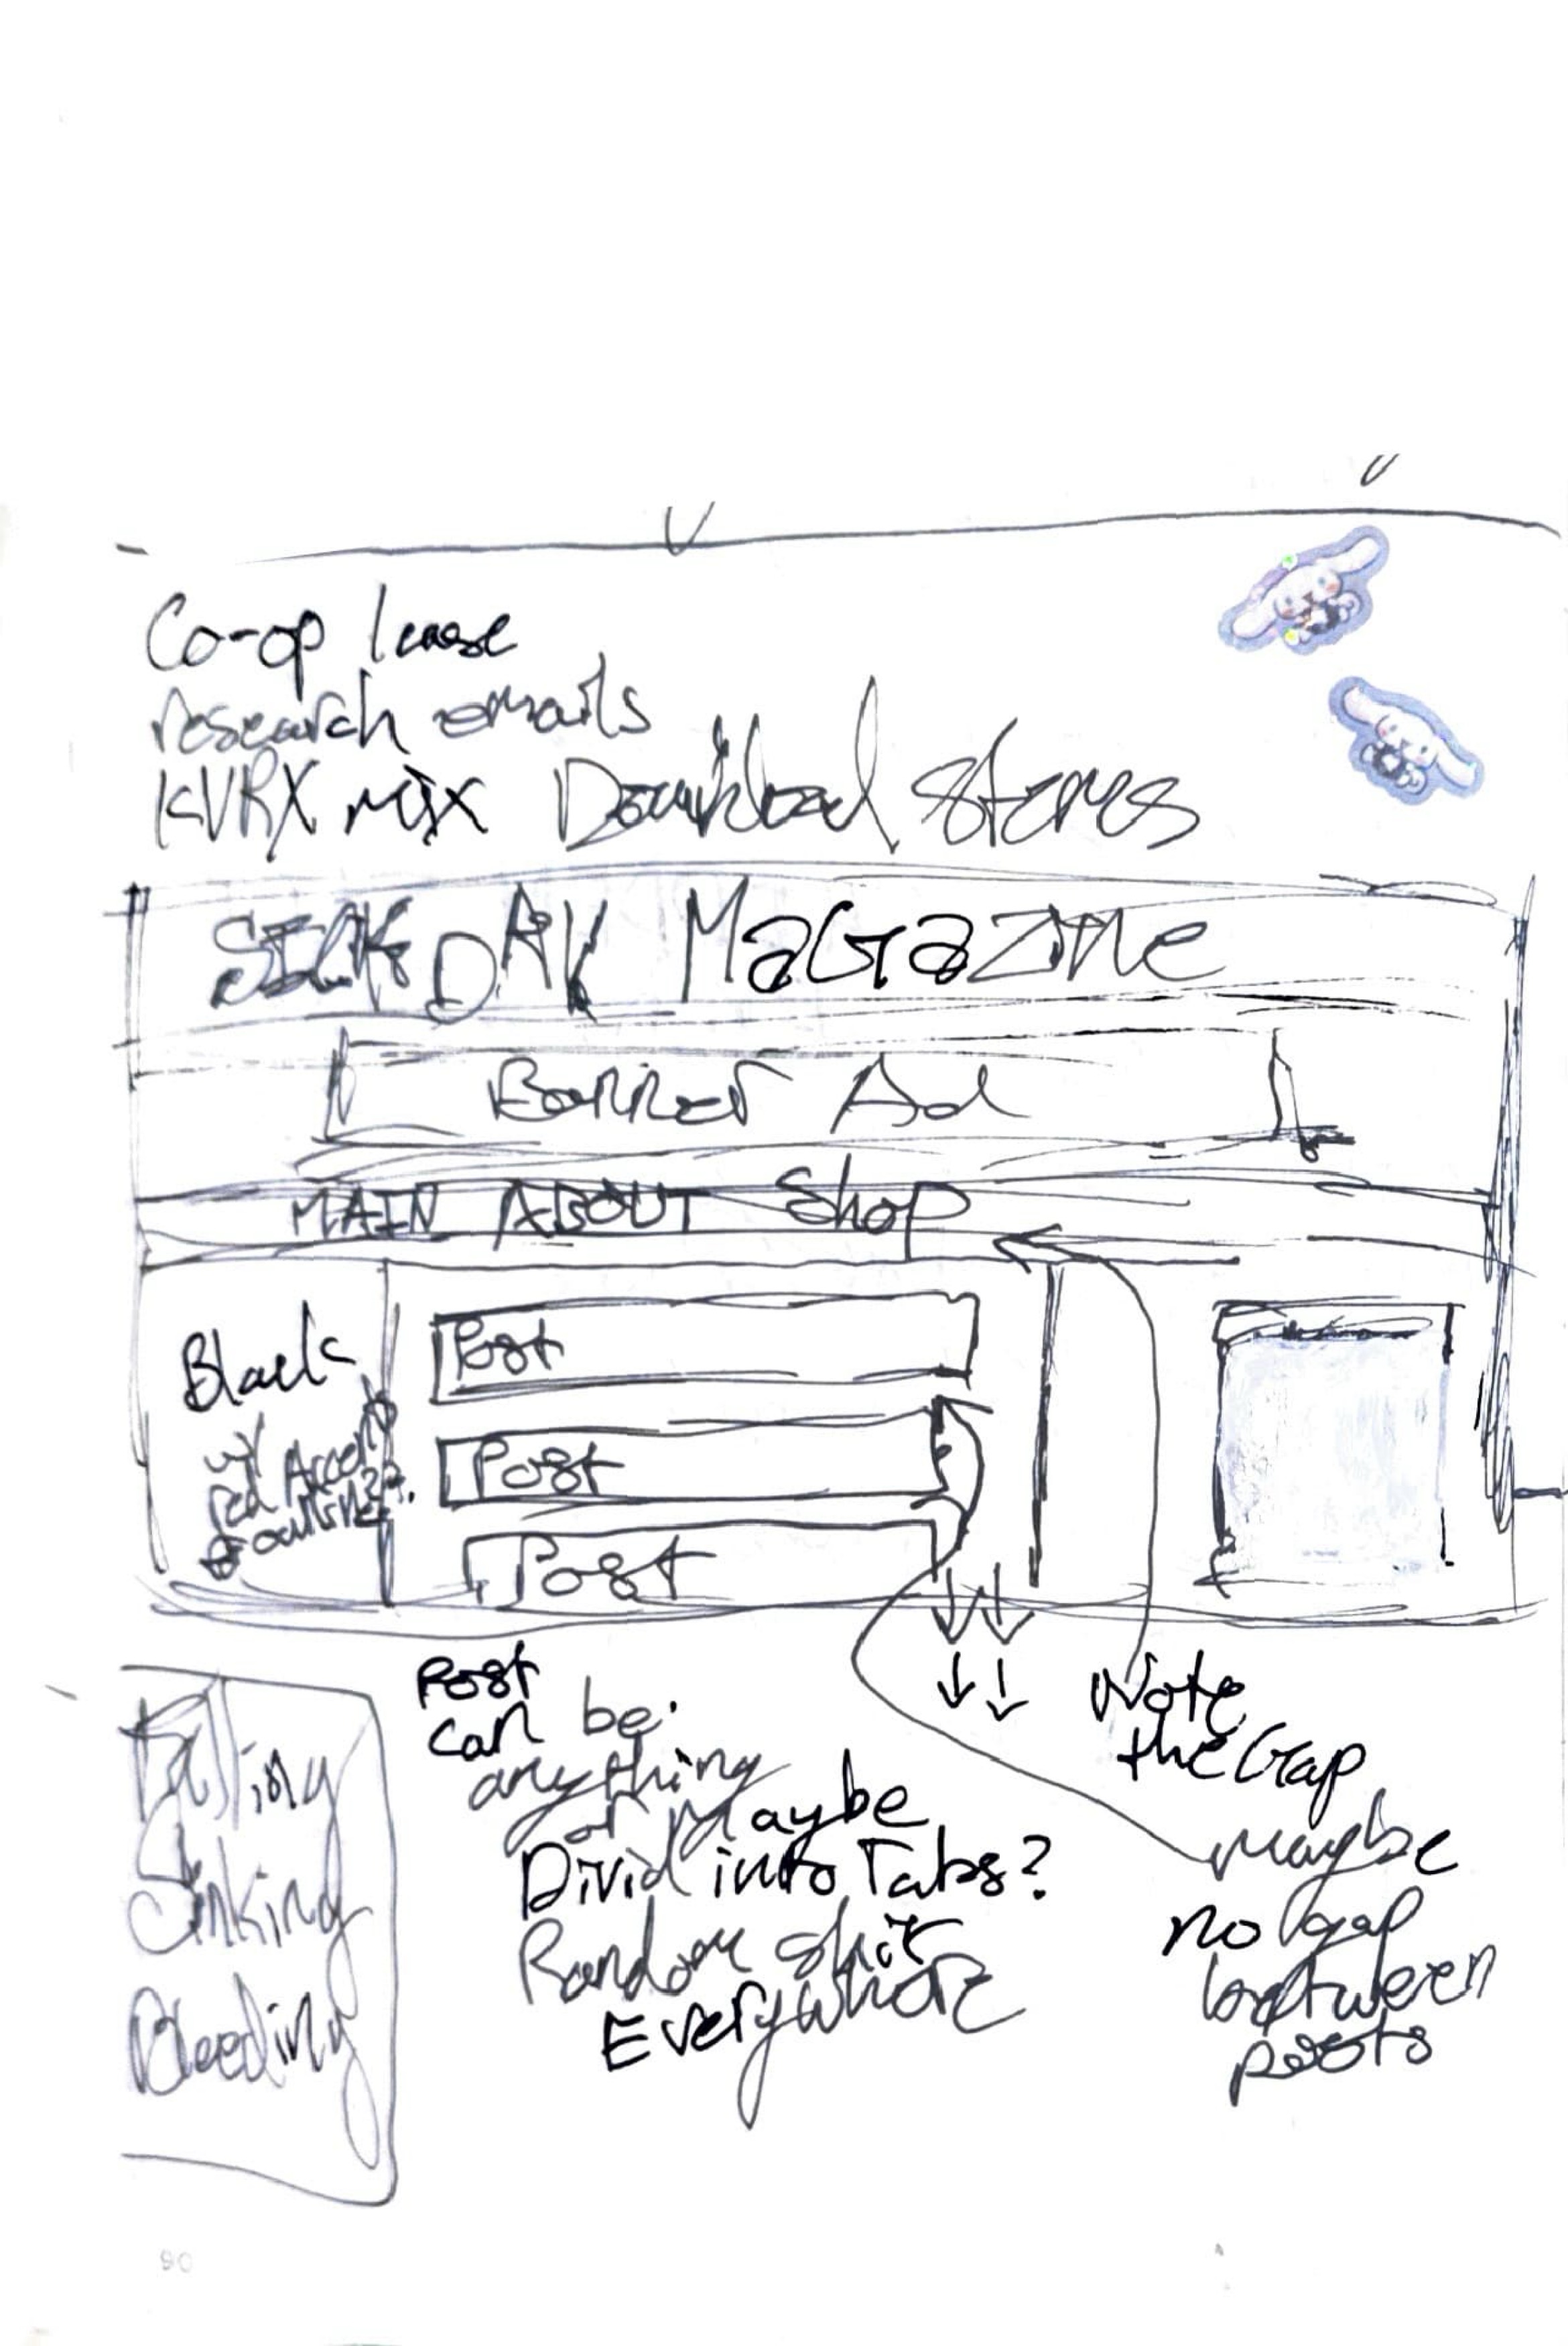 Co-op lease
research emails
KVRX mix Download stems
SICKDAY Magazine
Banner Ad
MAIN ABOUT Shop
Black
w/ red Accent
outline??
Post
Post
Post
Post
can be
anything
or Maybe
Divid into Tabs?
Random shit
EveryWhere
Note
the Gap
maybe
no gap
between
posts
Falling
Sinking
Bleeding